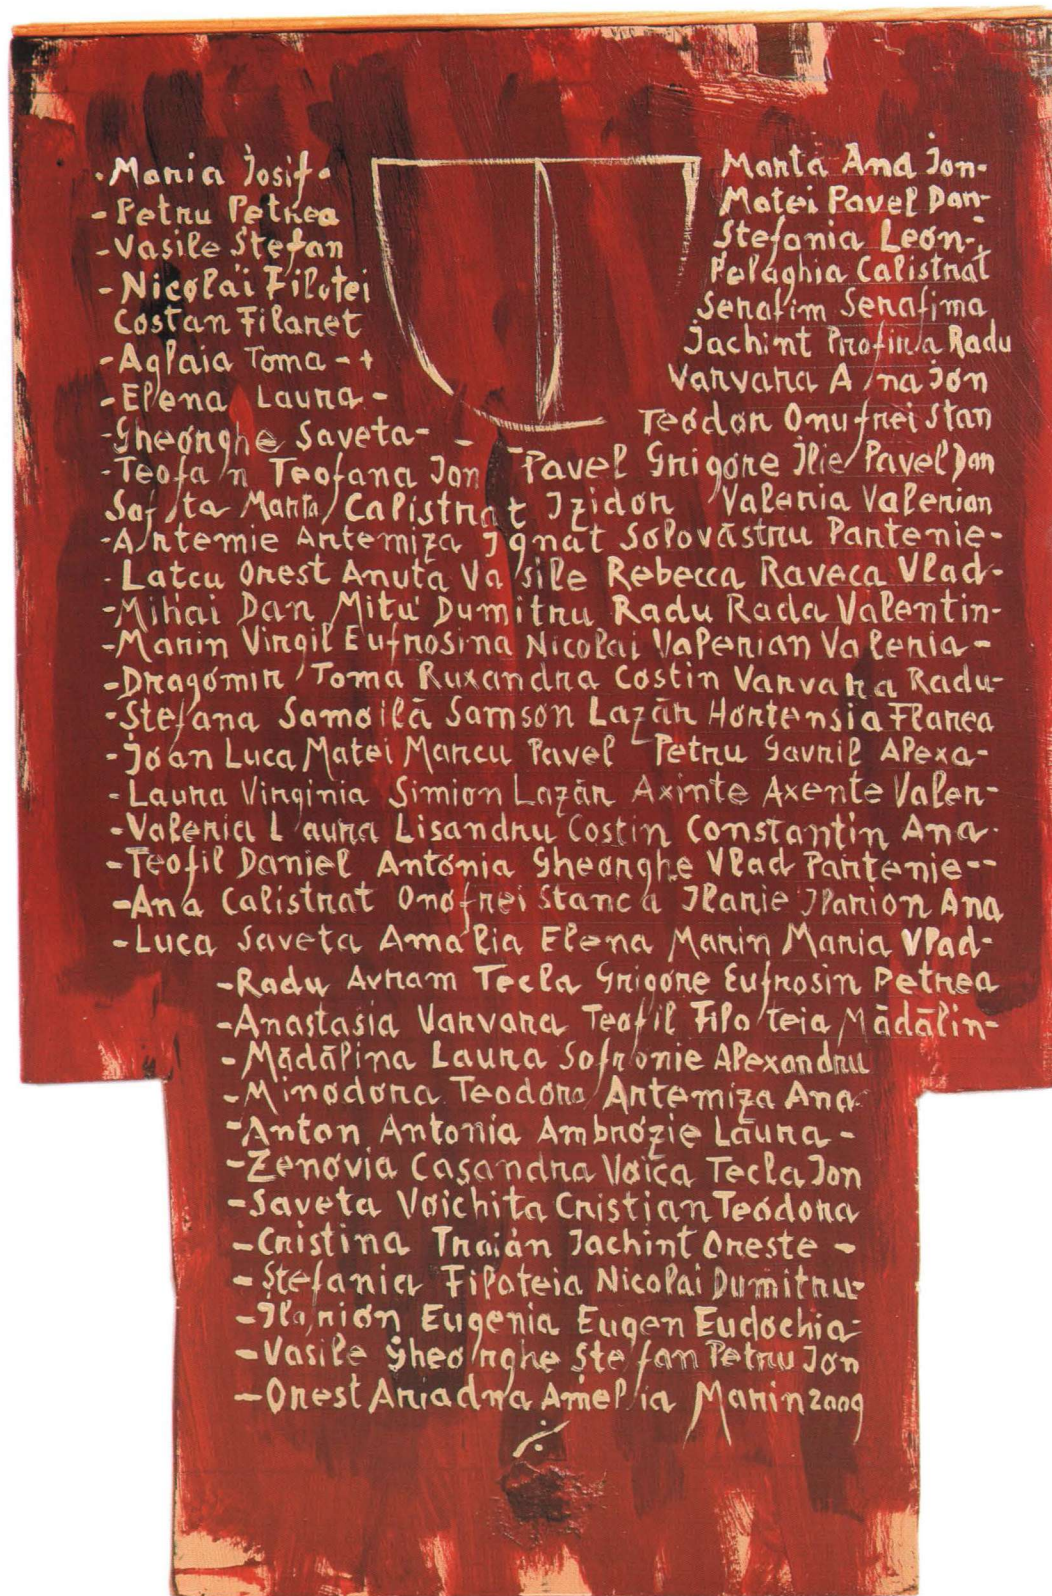 -Maria Iosif-
-Petru Petrea
-Vasile Ștefan
-Nicolai Filotei
Costan Filaret
-Aglaia Toma-+
-Elena Laura-
-Gheorghe Saveta- -
Marta Ana Ion-
Matei Pavel Dan-
Ștefania Leon-
Pelaghia Calistrat
Serafim Serafima
Iachint Profira Radu
Varvara Ana Ion
Teodor Onufrei Stan
-Teofan Teofana Ion -Pavel Grigore Ilie Pavel Dan
Safta Marta Calistrat Izidor Valeria Valerian
-Artemie Artemiza Ignat Solovăstru Pantenie-
-Latcu Orest Anuța Vasile Rebecca Raveca Vlad-
-Mihai Dan Mitu Dumitru Radu Rada Valentin-
-Marin Virgil Eufrosina Nicolai Valerian Valeria-
-Dragomir Toma Ruxandra Costin Varvara Radu-
-Ștefana Samoilă Samson Lazăr Hortensia Florea
-Ioan Luca Matei Marcu Pavel Petru Gavril Alexa-
-Laura Virginia Simion Lazăr Axinte Axente Valer-
-Valeria Laura Lisandru Costin Constantin Ana-
-Teofil Daniel Antonia Gheorghe Vlad Pantenie--
-Ana Calistrat Onofrei Stanca Ilarie Ilarion Ana
-Luca Saveta Amalia Elena Marin Maria Vlad-
-Radu Avram Tecla Grigore Eufrosin Petrea
-Anastasia Varvara Teofil Filoteia Mădălin-
-Mădălina Laura Sofronie Alexandru
-Minodora Teodora Artemiza Ana
-Anton Antonia Ambrozie Laura-
-Zenovia Casandra Voica Tecla Ion
-Saveta Voichita Cristian Teodora
-Cristina Traian Iachint Oreste-
-Ștefania Filoteia Nicolai Dumitru-
-Ilarion Eugenia Eugen Eudochia-
-Vasile Gheorghe Ștefan Petru Ion
-Orest Ariadna Amelia Marin 2009